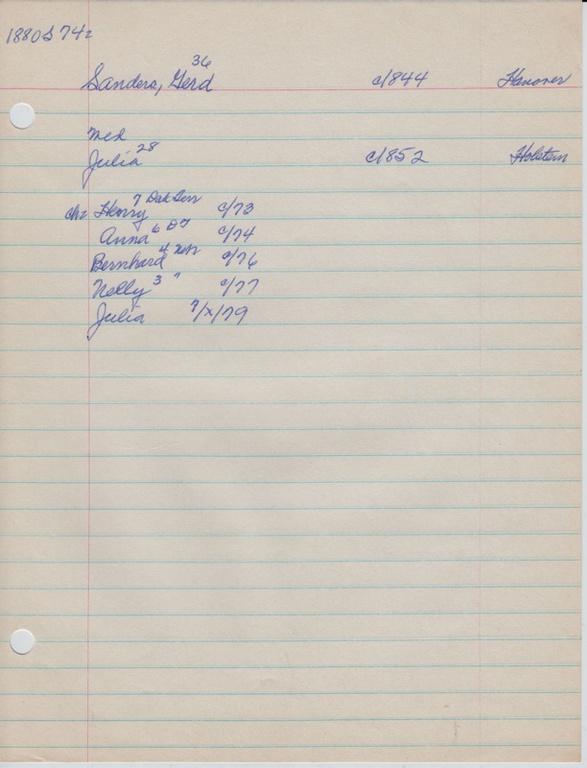 1880 S 742
Sanders, Gerd 36 c1844 Hanover
med
Julia 28 c1852 Holstein
ch: Henry 7 Dak Terr c/73
Anna 6 DT c/74
Bernhard 4 c/76
Nelly 3 " c/77
Julia 7/x/79